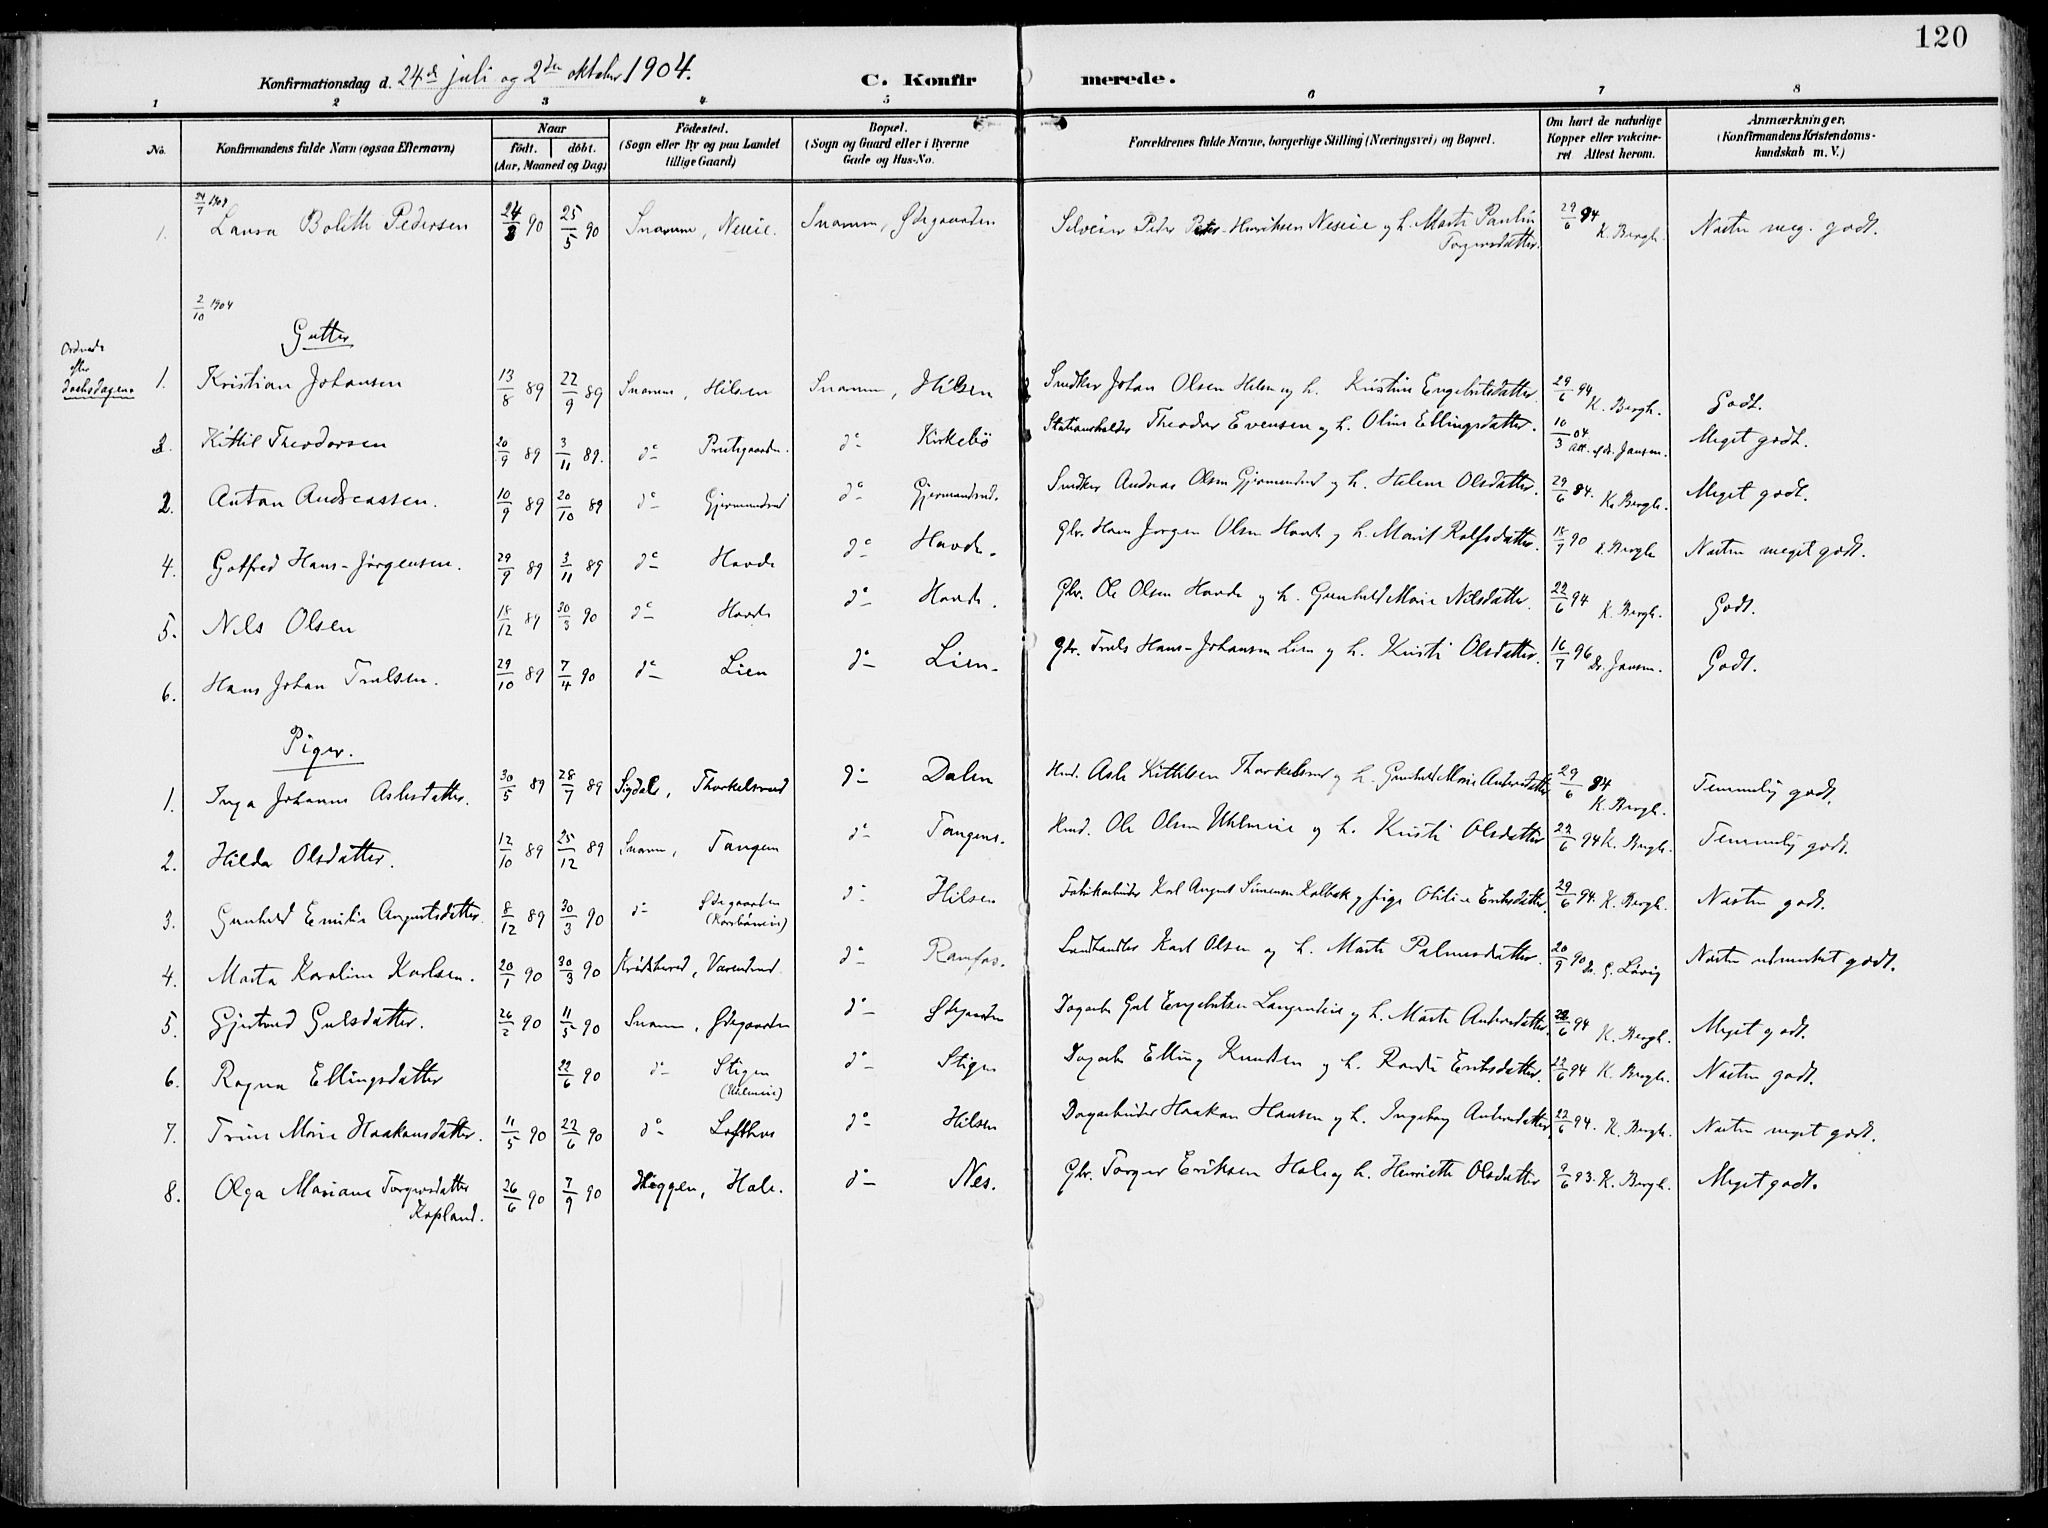 120
Konfirmationsdag d. 24de juli og 2den oktober 1904.
C. Konfirmerede.
1 2 3 4 5 6 7 8
No.
Konfirmandens fulde Navn (ogsaa Efternavn)
Naar
født. døbt.
(Aar, Maaned og Dag)
Fødested.
(Sogn eller By og paa Landet
tillige Gaard)
Bopæl.
(Sogn og Gaard eller i Byerne
Gade og Hus-No.
Forældrenes fulde Navne, borgerlige Stilling (Næringsvei) og Bopæl.
Om havt de naturlige
Kopper eller vakcine-
ret Attest herom.
Anmærkninger,
(Konfirmandens Kristendoms-
kundskab m. V.)
24/7 1904
1. Laura Bolette Pedersen 24/3 90 25/5 90 Snarum, Neseie. Snarum, Ødegaarden Peder Henriksen Neseie og h. Marte Pauline Torgersdatter. 29/6 94 K. Bergh. Næsten meg. godt.
2/10 1904
Gutter
Ordnede
efter
daabsdagene
1. Kristian Johansen 13/8 89 22/9 89 Snarum, Hilsen Snarum, Hilsen Snedker Johan Olsen Hilsen og h. Kristine Engebretsdatter. 29/6 94 K. Bergh. Godt.
3. Kittil Theodorsen 20/9 89 3/11 89. do Prestgaarden. do Kirkebø Stationsholder Theodor Evensen og h. Oline Ellingsdatter. 10/3 04 Att. af dr. Jansen. Meget godt.
2. Anton Andreassen. 10/9 89 20/10 89 do Gjermundrud do Gjermundrud. Snedker Andreas Olsen Gjermundrud og h. Helene Olsdatter. 29/6 94. K. Bergh. Meget godt.
4. Gotfred Hans-Jørgensen. 29/9 89 3/11 89 do Hovde do Hovde. Gbr. Hans Jørgen Olsen Hovde og h. Marit Rolfsdatter. 18/7 90 K. Bergh Næsten meget godt.
5. Nils Olsen 18/12 89 30/3 90 do Hovde do Hovde. Gbr. Ole Olsen Hovde og h. Gunhild Marie Nilsdatter. 22/6 94 K. Bergh. Godt.
6. Hans Johan Trulsen. 29/10 89 7/4 90 do Lien do Lien. Gbr. Truls Hans-Johansen Lien og h. Kristi Olsdatter. 16/7 96 Dr. Jansen. Godt.
Piger.
1. Inga Johanne Aslesdatter. 30/5 89 28/7 89 Sigdal, Thorkelsrud do Dalen Hmd. Asle Kittilsen Thorkelsrud og h. Gunhild Marie Andersdatter 29/6 94 K. Bergh. Temmelig godt.
2. Hilda Olsdatter. 12/10 89 25/12 89 Snarum, Tangen do Tangen. Hmd. Ole Olsen Uhlneie og h. Kristi Olsdatter 22/6 94 K. Bergh. Temmelig godt.
3. Gunhild Emilie Augustsdatter. 8/12 89 30/3 90 do Ødegaarden do Hilsen Fabrikarbeider Karl August Simensen Kolbæk og pige Otilie Eriksdatter. 29/6 94. K. Bergh. Næsten godt.
4. Marta Karoline Karlsen. 20/1 90 30/3 90 Krødsherred, do Ramfos. Landhandler Karl Olsen og h. Marte Palmesdatter. 20/9 90 Dr. G. Næsten udmerket godt.
5. Gjertrud Gulsdatter. 26/2 90 11/5 90 Snarum, Ødegaarden do Ødegaarden Dagarb. Gul Engebretsen og h. Marte Andersdatter. 22/6 94 K. Bergh. Meget godt.
6. Ragna Ellingsdatter 22/6 90 do Stigen (Uhlneie) do Stigen Dagarb. Elling Knudsen og h. Randi Eriksdatter. 22/6 94 K. Bergh. Næsten godt.
7. Trine Marie Haakonsdatter. 11/5 90 22/6 90 do Lofthus do Hilsen Dagarbeider Haakon Hansen og h. Ingeborg Andersdatter. 22/6 94. K. Bergh. Næsten meget godt.
8. Olga Mariane Torgersdatter Kopland. 26/6 90 7/9 90 Heggen, Hole. do Nes. Gbr. Torger Eriksen Hole og h. Henriette Olsdatter 9/6 93. K. Bergh. Meget godt.